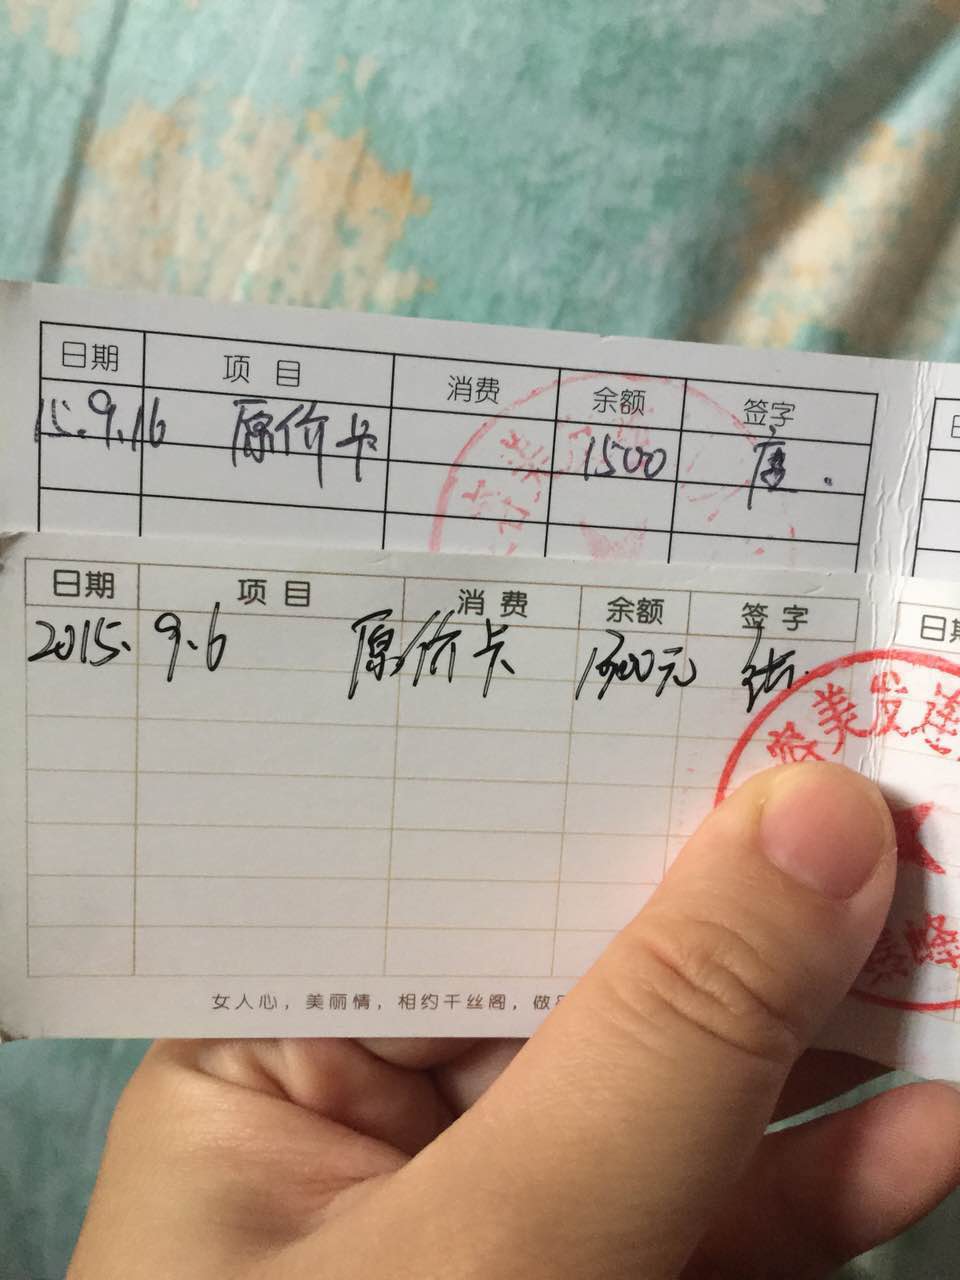 日期 项目 消费 余额 签字
15.9.16 原价卡 1500 唐.
日期 项目 消费 余额 签字 日期
2015.9.6 原价卡 元
美发连
女人心，美丽情，相约千丝阁，做